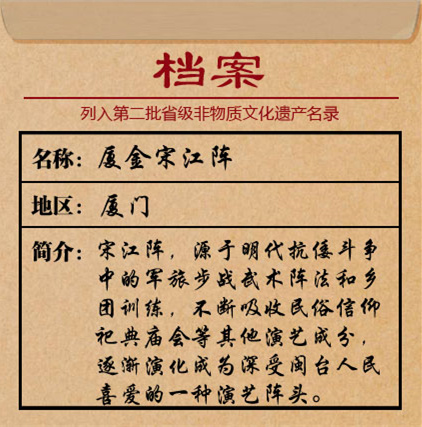 档案
列入第二批省级非物质文化遗产名录
名称：厦金宋江阵
地区：厦门
简介：宋江阵，源于明代抗倭斗争
中的军旅步战武术阵法和乡
团训练，不断吸收民俗信仰
祀典庙会等其他演艺成分，
逐渐演化成为深受闽台人民
喜爱的一种演艺阵头。